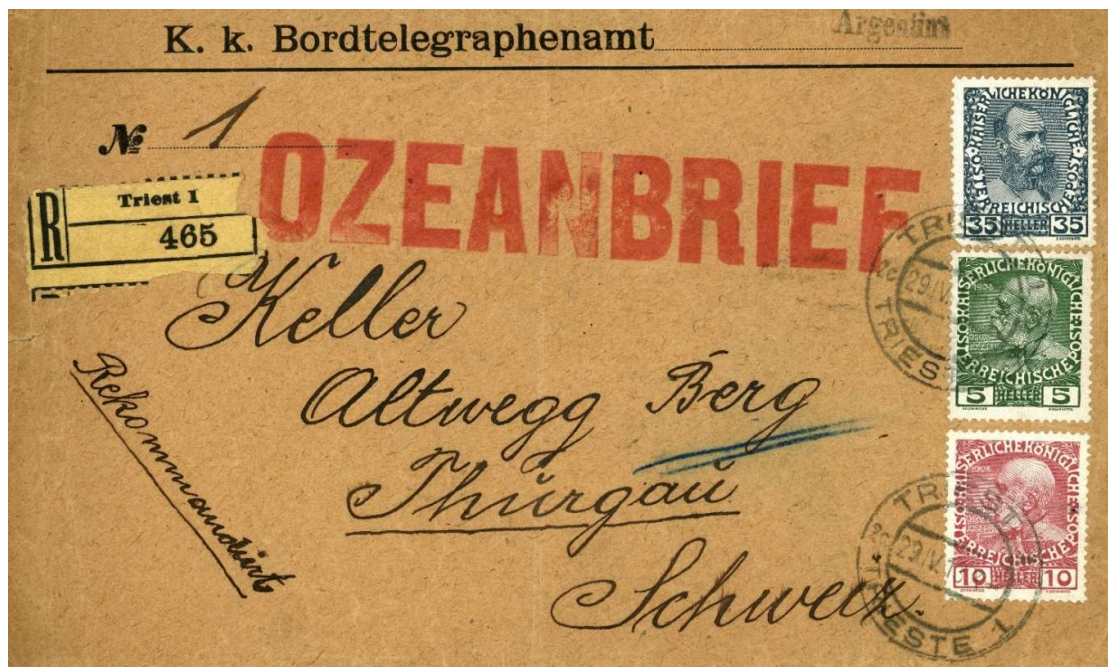 K. k. Bordtelegraphenamt Argentina
№ 1
OZEANBRIEF
R Triest 1
465
Keller
Altwegg Berg
Thurgau
Schweiz.
Rekommandirt
KAISERLICHE KÖNIGLICHE ÖSTERREICHISCHE POST
35 HELLER 35
TRIEST 1
29.IV.1
2c
TRIESTE 1
KAISERLICHE KÖNIGLICHE ÖSTERREICHISCHE POST
1908
5 HELLER 5
KAISERLICHE KÖNIGLICHE ÖSTERREICHISCHE POST
1908
10 HELLER 10
TRIEST
29.IV.1
2c
TRIESTE 1